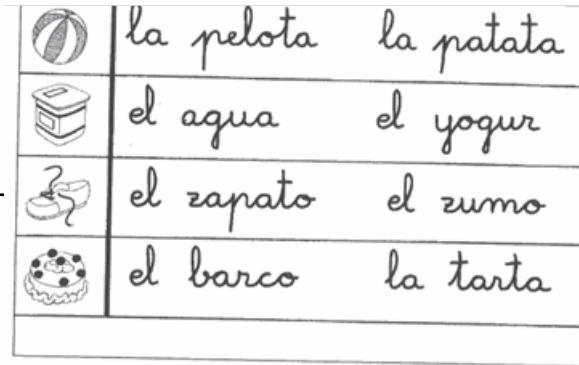 la pelota la patata
el agua el yogur
el zapato el zumo
el barco la tarta